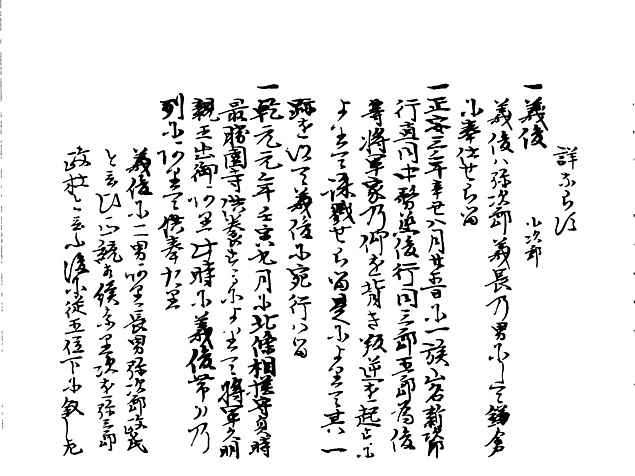 詳ならす
一義俊 小次郎
義俊ハ弥次郎義長乃男にして鎌倉
に奉仕せら留
一正安三年辛丑八月廿五日に一族山名新次郎
行直同中務丞俊行同三郎五郎為俊
等将軍家乃仰を背き叛逆を起しに
よ里て誅戮せら留是によ里て其一
跡を以て義俊に宛行ハ留
一乾元元年壬寅九月に北條相模守貞時
最勝園寺供養すこによ里て将軍久明
親王出御阿里此時に義俊帯刀乃
列に阿里て供奉た里
義俊に二男阿里長男弥次郎政氏
と云ひ
政 と云ふ後に従五位下に叙した